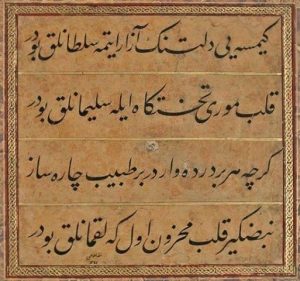 كیمسه یی دلتنك آزار ایتمه سلطانلق بودر
قلب موری تختكاه ایله سلیمانلق بودر
گرچه هر بر درده وارد بر طبیب چاره ساز
نبضگیر قلب محزون اول كه لقمانلق بودر